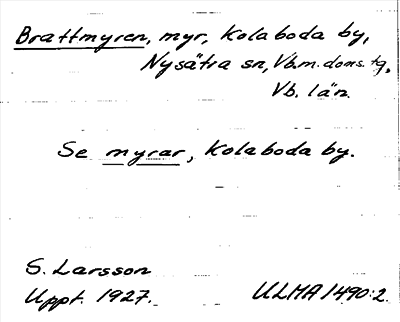 Brattmyren, myr, Kolaboda by,
Nysätra sn, Vb.m. doms. tg,
Vb. län.
Se myrar, Kolaboda by.
S. Larsson
Uppt. 1927.
ULMA 1490:2.